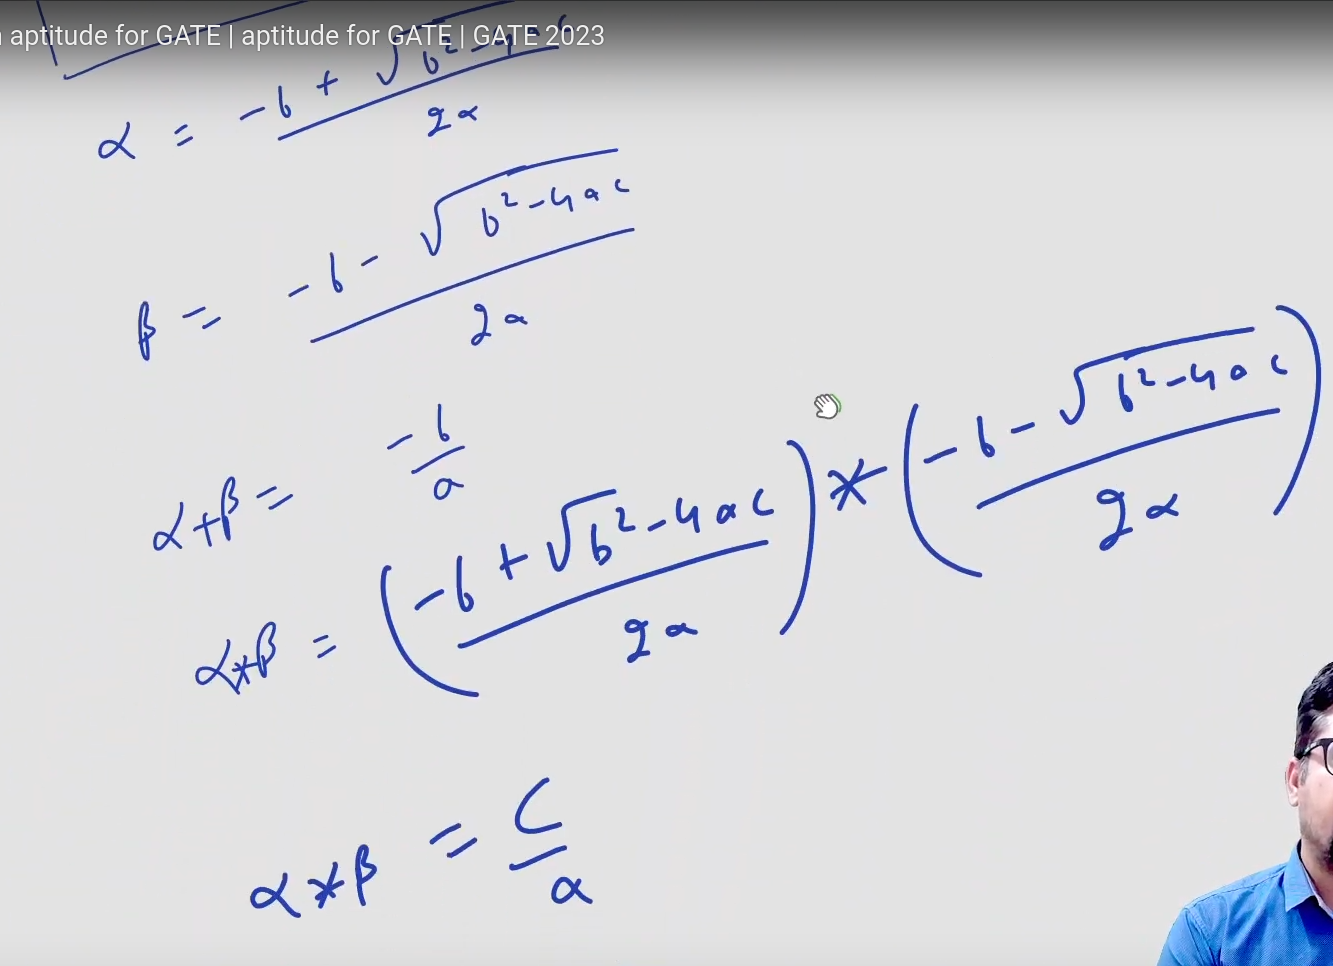 aptitude for GATE | aptitude for GATE | GATE 2023
α = (-b + √(b² - 4ac)) / 2a
β = (-b - √(b² - 4ac)) / 2a
α+β = -b/a
α*β = ((-b + √b² - 4ac) / 2a) * ((-b - √(b² - 4ac)) / 2a)
α*β = C/a